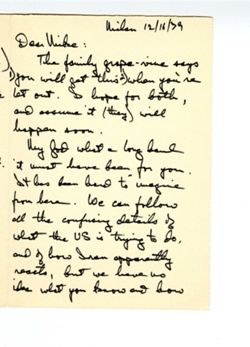 Milan 12/16/79
Dear Mike:
The family grape-vine says
1) you will get "this" 2) when you're
let out. I hope for both,
and assume it (they) will
happen soon.
My God what a long haul
it must have been for you.
It has been hard to imagine
from here. We can follow
all the confusing details of
what the US is trying to do,
and of how Iran apparently
reacts, but we have no
idea what you know and how